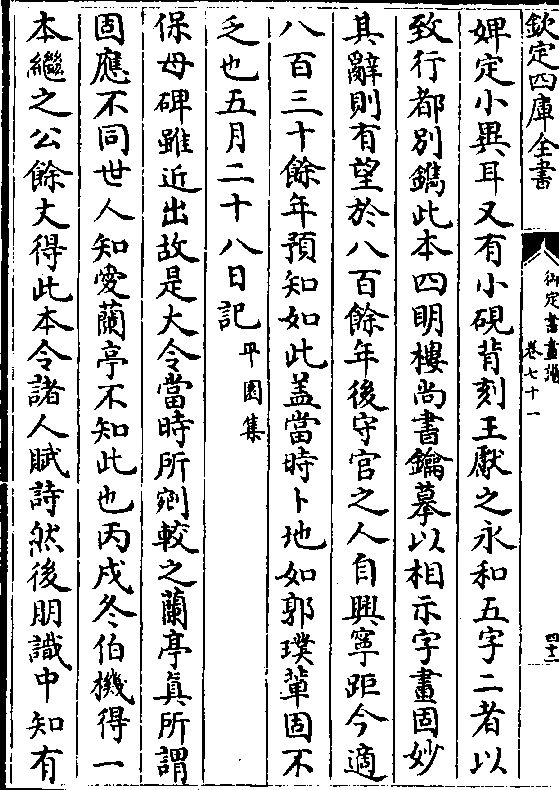 欽定四庫全書
御定書畫譜
卷七十一
四十二
婢定小異耳又有小硯背刻王獻之永和五字二者以
致行都別鐫此本四明樓尚書鑰摹以相示字畫固妙
其辭則有望於八百餘年後守官之人自興寧距今適
八百三十餘年預知如此盖當時卜地如郭璞軰固不
乏也五月二十八日記平園集
保母碑雖近出故是大令當時所刻較之蘭亭真所謂
固應不同世人知愛蘭亭不知此也丙戌冬伯機得一
本繼之公餘丈得此本令諸人賦詩然後朋識中知有